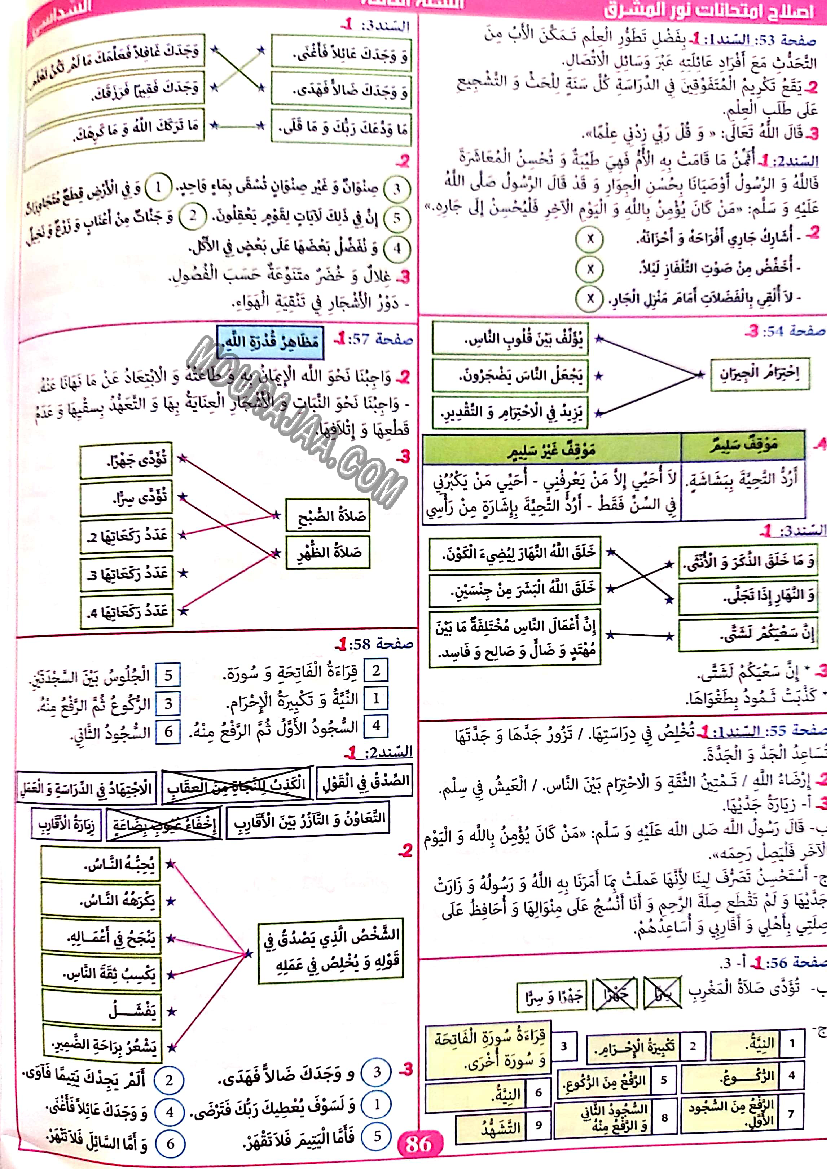 اصلاح امتحانات نور المشرق
السنة الثالثة
السداسي
صفحة 53: السّند1: 1- بِفَضْلِ تَطَوُّرِ الْعِلْمِ تَمَكَّنَ الْأَبُ مِنَ
التَّحَدُّثِ مَعَ أَفْرَادِ عَائِلَتِهِ عَبْرَ وَسَائِلِ الْاتِّصَالِ.
2- يَقَعُ تَكْرِيمُ الْمُتَفَوِّقِينَ فِي الدِّرَاسَةِ كُلَّ سَنَةٍ لِلْحَثِّ وَ التَّشْجِيعِ
عَلَى طَلَبِ الْعِلْمِ.
3- قَالَ اللَّهُ تَعَالَى: « وَ قُلْ رَبِّي زِدْنِي عِلْمًا».
السّند2: 1- أُثَمِّنُ مَا قَامَتْ بِهِ الْأُمُّ فَهِيَ طَيِّبَةٌ وَ تُحْسِنُ الْمُعَاشَرَةَ
فَاللَّهُ وَ الرَّسُولُ أَوْصَيَانَا بِحُسْنِ الْجِوَارِ وَ قَدْ قَالَ الرَّسُولُ صَلَّى اللَّهُ
عَلَيْهِ وَ سَلَّمَ: «مَنْ كَانَ يُؤْمِنُ بِاللَّهِ وَ الْيَوْمِ الْآخِرِ فَلْيُحْسِنْ إِلَى جَارِهِ.»
2- - أُشَارِكُ جَارِي أَفْرَاحَهُ وَ أَحْزَانَهُ. x
- أُخَفِّضُ مِنْ صَوْتِ التِّلْفَازِ لَيْلًا. x
- لاَ أُلْقِي بِالْفَضَلَاتِ أَمَامَ مَنْزِلِ الْجَارِ. x
صفحة 54: 3-
اِحْتِرَامُ الْجِيرَانِ
يُؤَلِّفُ بَيْنَ قُلُوبِ النَّاسِ.
يَجْعَلُ النَّاسَ يَضْجَرُونَ.
يَزِيدُ فِي الْاحْتِرَامِ وَ التَّقْدِيرِ.
4-
مَوْقِفٌ سَلِيمٌ
مَوْقِفٌ غَيْرُ سَلِيمٍ
أَرُدُّ التَّحِيَّةَ بِبَشَاشَةٍ.
لاَ أُحَيِّي إِلاَّ مَنْ يَعْرِفُنِي - أُحَيِّي مَنْ يَكْبُرُنِي
فِي السِّنِّ فَقَطْ - أَرُدُّ التَّحِيَّةَ بِإِشَارَةٍ مِنْ رَأْسِي
السّند3: 1-
وَ مَا خَلَقَ الذَّكَرَ وَ الْأُنْثَى.
وَ النَّهَارِ إِذَا تَجَلَّى.
إِنَّ سَعْيَكُمْ لَشَتَّى.
خَلَقَ اللَّهُ النَّهَارَ لِيُضِيءَ الْكَوْنَ.
خَلَقَ اللَّهُ الْبَشَرَ مِنْ جِنْسَيْنِ.
إِنَّ أَعْمَالَ النَّاسِ مُخْتَلِفَةٌ مَا بَيْنَ
مُهْتَدٍ وَ ضَالٍّ وَ صَالِحٍ وَ فَاسِدٍ.
3- * إِنَّ سَعْيَكُمْ لَشَتَّى.
* كَذَّبَتْ ثَمُودُ بِطَغْوَاهَا.
صفحة 55: السّند1: 1- تُخْلِصُ فِي دِرَاسَتِهَا. / تَزُورُ جَدَّهَا وَ جَدَّتَهَا
تُسَاعِدُ الْجَدَّ وَ الْجَدَّةَ.
2- إِرْضَاءُ اللَّهِ / تَمْتِينُ الثِّقَةِ وَ الْاحْتِرَامِ بَيْنَ النَّاسِ. / الْعَيْشُ فِي سِلْمٍ.
3- أ- زِيَارَةُ جَدَّيْهَا.
ب- قَالَ رَسُولُ اللَّهِ صَلَى اللَّهُ عَلَيْهِ وَ سَلَّمَ: «مَنْ كَانَ يُؤْمِنُ بِاللَّهِ وَ الْيَوْمِ
الْآخَرِ فَلْيَصِلْ رَحِمَه».
ج- أَسْتَحْسِنُ تَصَرُّفَ لِينَا لِأَنَّهَا عَمِلَتْ بِمَا أَمَرَنَا بِهِ اللَّهُ وَ رَسُولُهُ وَ زَارَتْ
جَدَّيْهَا وَ لَمْ تَقْطَعِ صِلَةَ الرَّحِمِ وَ أَنَا أَنْسُجُ عَلَى مِنْوَالِهَا وَ أُحَافِظُ عَلَى
صِلَتِي بِأَهْلِي وَ أَقَارِبِي وَ أُسَاعِدُهُمْ.
صفحة 56: 1- أ- 3.
ب- تُؤَدَّى صَلَاةُ الْمَغْرِبِ
سِرًّا
جَهْرًا
جَهْرًا وَ سِرًّا
ج-
1 النِّيَّةُ.
2 تَكْبِيرَةُ الْإِحْرَامِ.
3 قِرَاءَةُ سُورَةِ الْفَاتِحَةِ
وَ سُورَةٍ أُخْرَى.
4 الرُّكُوعُ.
5 الرَّفْعُ مِنَ الرُّكُوعِ.
6 النِّيَّةُ.
7 الرَّفْعُ مِنَ السُّجُودِ
الْأَوَّلِ.
8 السُّجُودُ الثَّانِي
وَ الرَّفْعُ مِنْهُ
9 التَّشَهُّدُ
السّند3: 1-
وَ وَجَدَكَ عَائِلًا فَأَغْنَى.
وَ وَجَدَكَ ضَالاًّ فَهَدَى.
مَا وَدَّعَكَ رَبُّكَ وَ مَا قَلَى.
وَجَدَكَ غَافِلاً فَعَلَّمَكَ مَا لَمْ تَكُنْ تَعْلَمُ.
وَجَدَكَ فَقِيرًا فَرَزَقَكَ.
مَا تَرَكَكَ اللَّهُ وَ مَا كَرِهَكَ.
2-
3 صِنْوَانٌ وَ غَيْرُ صِنْوَانٍ تُسْقَى بِمَاءٍ وَاحِدٍ. 1 وَ فِي الْأَرْضِ قِطَعٌ مُتَجَاوِرَاتٌ
5 إِنَّ فِي ذَلِكَ لَآيَاتٍ لِقَوْمٍ يَعْقِلُونَ. 2 وَ جَنَّاتٌ مِنْ أَعْنَابٍ وَ زَرْعٌ وَ نَخِيلٌ
4 وَ نُفَضِّلُ بَعْضَهَا عَلَى بَعْضٍ فِي الْأُكُلِ.
3- غِلَالٌ وَ خُضَرٌ مُتَنَوِّعَةٌ حَسَبَ الْفُصُولِ.
- دَوْرُ الْأَشْجَارِ فِي تَنْقِيَةِ الْهَوَاءِ.
صفحة 57: 1- مَظَاهِرُ قُدْرَةِ اللَّهِ.
2- وَاجِبُنَا نَحْوَ اللَّهِ الْإِيمَانُ بِهِ وَ طَاعَتُهُ وَ الْابْتِعَادُ عَنْ مَا نَهَانَا عَنْهُ.
- وَاجِبُنَا نَحْوَ النَّبَاتِ وَ الْأَشْجَارِ الْعِنَايَةُ بِهَا وَ التَّعَهُّدُ بِسَقْيِهَا وَ عَدَمُ
قَطْعِهَا وَ إِتْلَافِهَا.
3-
صَلَاةُ الصُّبْحِ
صَلَاةُ الظُّهْرِ
تُؤَدَّى جَهْرًا.
تُؤَدَّى سِرًّا.
عَدَدُ رَكَعَاتِهَا 2.
عَدَدُ رَكَعَاتِهَا 3.
عَدَدُ رَكَعَاتِهَا 4.
صفحة 58: 1-
2 قِرَاءَةُ الْفَاتِحَةِ وَ سُورَة. 5 الْجُلُوسُ بَيْنَ السَّجْدَتَيْنِ.
1 النِّيَّةُ وَ تَكْبِيرَةُ الْإِحْرَامِ. 3 الرُّكُوعُ ثُمَّ الرَّفْعُ مِنْهُ.
4 السُّجُودُ الْأَوَّلُ ثُمَّ الرَّفْعُ مِنْهُ. 6 السُّجُودُ الثَّانِي.
السّند2: 1-
الصِّدْقُ فِي الْقَوْلِ
الْكَذِبُ لِلنَّجَاةِ مِنَ الْعِقَابِ
الْاجْتِهَادُ فِي الدِّرَاسَةِ وَ الْعَمَلِ
التَّعَاوُنُ وَ التَّآزُرُ بَيْنَ الْأَقَارِبِ
إِخْفَاءُ عُيُوبِ بِضَاعَةٍ
زِيَارَةُ الْأَقَارِبِ
2-
الشَّخْصُ الَّذِي يَصْدُقُ فِي
قَوْلِهِ وَ يُخْلِصُ فِي عَمَلِهِ
يُحِبُّهُ النَّاسُ.
يَكْرَهُهُ النَّاسُ.
يَنْجَحُ فِي أَعْمَالِهِ.
يَكْسِبُ ثِقَةَ النَّاسِ.
يَفْشَلُ
يَشْعُرُ بِرَاحَةِ الضَّمِيرِ.
3- 3 و وَجَدَكَ ضَالاًّ فَهَدَى. 2 أَلَمْ يَجِدْكَ يَتِيمًا فَآوَى.
1 وَ لَسَوْفَ يُعْطِيكَ رَبُّكَ فَتَرْضَى. 4 وَ وَجَدَكَ عَائِلاً فَأَغْنَى.
5 فَأَمَّا الْيَتِيمَ فَلاَ تَقْهَرْ. 6 وَ أَمَّا السَّائِلَ فَلاَ تَنْهَرْ.
86
MOURAJAA.COM